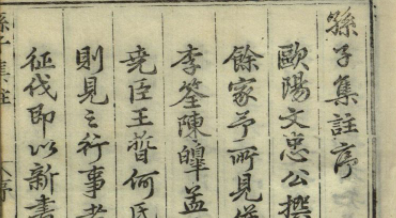 孫子集註序
歐陽文忠公撰
餘家予所見僅
李筌陳皥孟
堯臣王晳何氏
則見之行事者
征伐即以新書
孫子集註 序